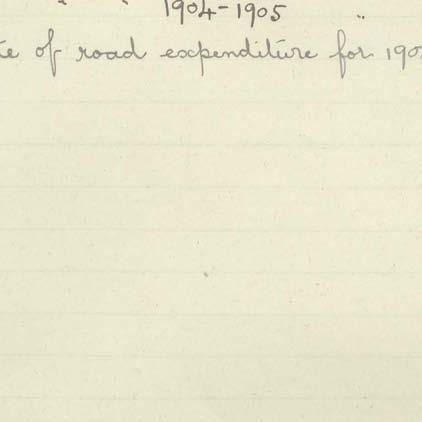 1904-1905
te of road expenditure for 190